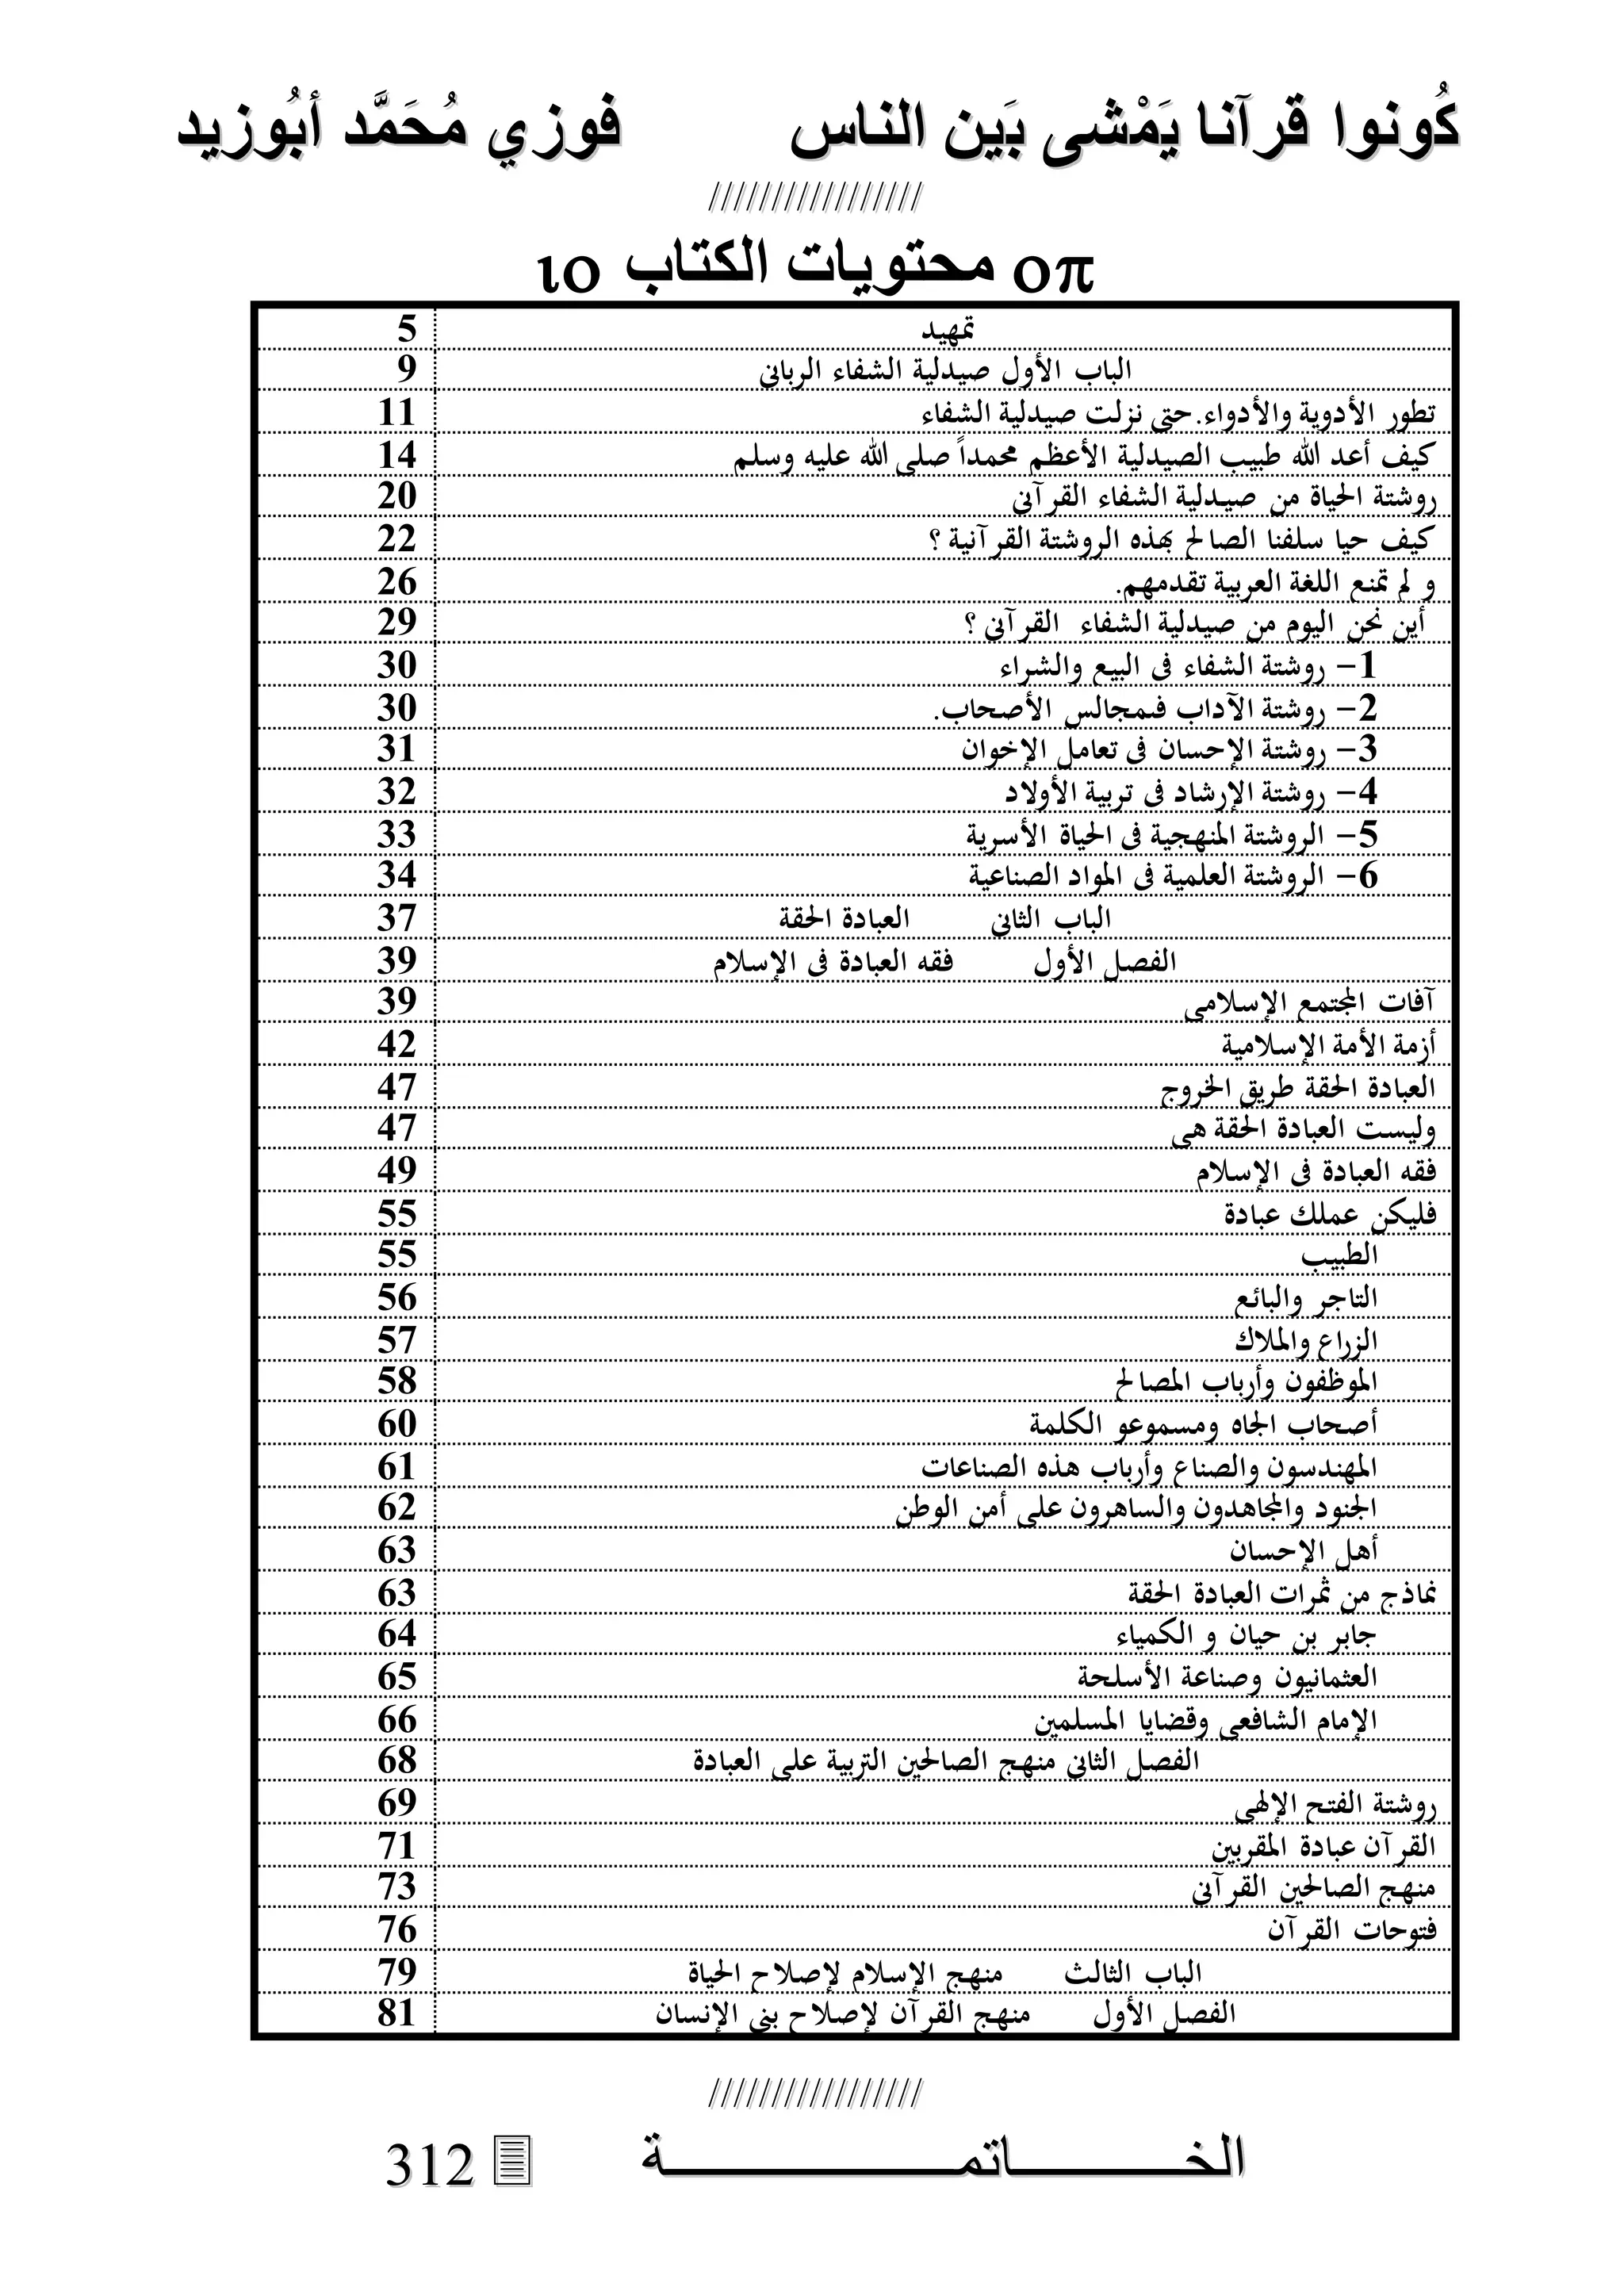 كُونوا قرآنا يَمْشى بَين الناس فوزي مُحَمَّد أبُوزيد
/////////////////
οπ محتويات الكتاب ιο
تمهيد 5
الباب الأول صيدلية الشفاء الربانى 9
تطور الأدوية والأدواء.حتى نزلت صيدلية الشفاء 11
كيف أعد الله طبيب الصيدلية الأعظم محمداً صلى الله عليه وسلم 14
روشتة الحياة من صيدلية الشفاء القرآنى 20
كيف حيا سلفنا الصالح بهذه الروشتة القرآنية ؟ 22
و لم تمنع اللغة العربية تقدمهم. 26
أين نحن اليوم من صيدلية الشفاء القرآنى ؟ 29
1- روشتة الشفاء فى البيع والشراء 30
2- روشتة الآداب فىمجالس الأصحاب. 30
3- روشتة الإحسان فى تعامل الإخوان 31
4- روشتة الإرشاد فى تربية الأولاد 32
5- الروشتة المنهجية فى الحياة الأسرية 33
6- الروشتة العلمية فى المواد الصناعية 34
الباب الثانى العبادة الحقة 37
الفصل الأول فقه العبادة فى الإسلام 39
آفات المجتمع الإسلامى 39
أزمة الأمة الإسلامية 42
العبادة الحقة طريق الخروج 47
وليست العبادة الحقة هى 47
فقه العبادة فى الإسلام 49
فليكن عملك عبادة 55
الطبيب 55
التاجر والبائع 56
الزراع والملاك 57
الموظفون وأرباب المصالح 58
أصحاب الجاه ومسموعو الكلمة 60
المهندسون والصناع وأرباب هذه الصناعات 61
الجنود والمجاهدون والساهرون على أمن الوطن 62
أهل الإحسان 63
نماذج من ثمرات العبادة الحقة 63
جابر بن حيان و الكمياء 64
العثمانيون وصناعة الأسلحة 65
الإمام الشافعى وقضايا المسلمين 66
الفصل الثانى منهج الصالحين التربية على العبادة 68
روشتة الفتح الإلهى 69
القرآن عبادة المقربين 71
منهج الصالحين القرآنى 73
فتوحات القرآن 76
الباب الثالث منهج الإسلام لإصلاح الحياة 79
الفصل الأول منهج القرآن لإصلاح بنى الإنسان 81
/////////////////
الخـــــــاتمـــــــــــة 312